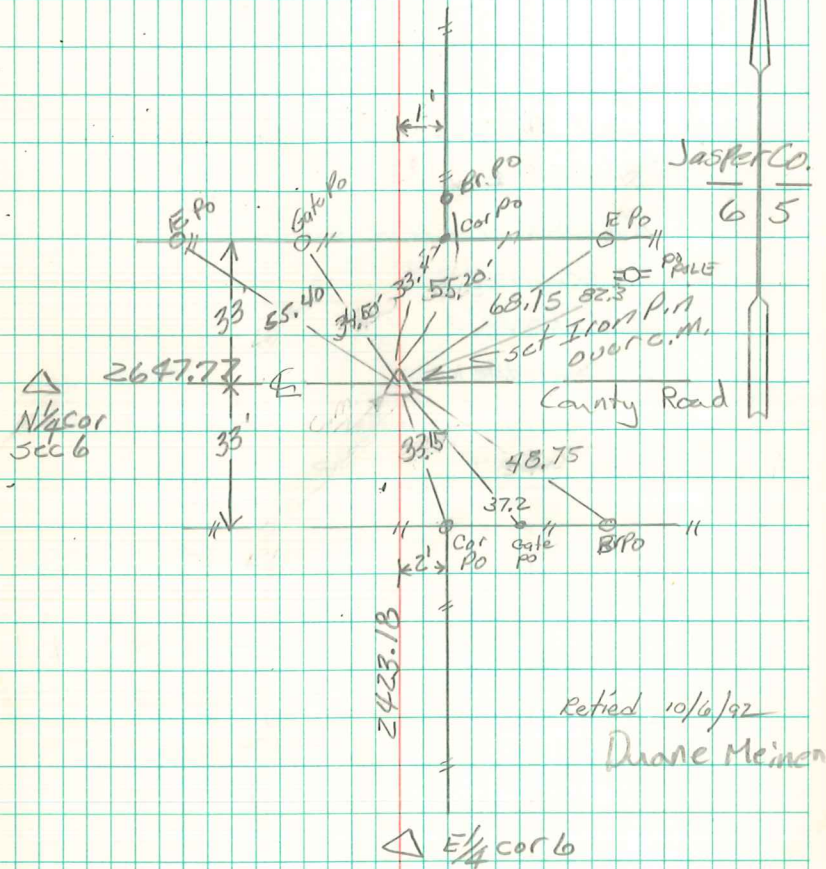 1'
Jasper Co.
6 5
Br. Po
Cor Po
E Po
Gate Po
E Po
PR POLE
33'
55.40
34.50'
33.4'
55.20'
68.15
82.3
set Iron Pin
over c.m.
2647.77
℄
County Road
N 1/4 cor
sec 6
33'
33.15
48.75
37.2
Cor
Po
Gate
Po
Br Po
2'
2423.18
Retied 10/6/92
Duane Meinen
E 1/4 cor 6